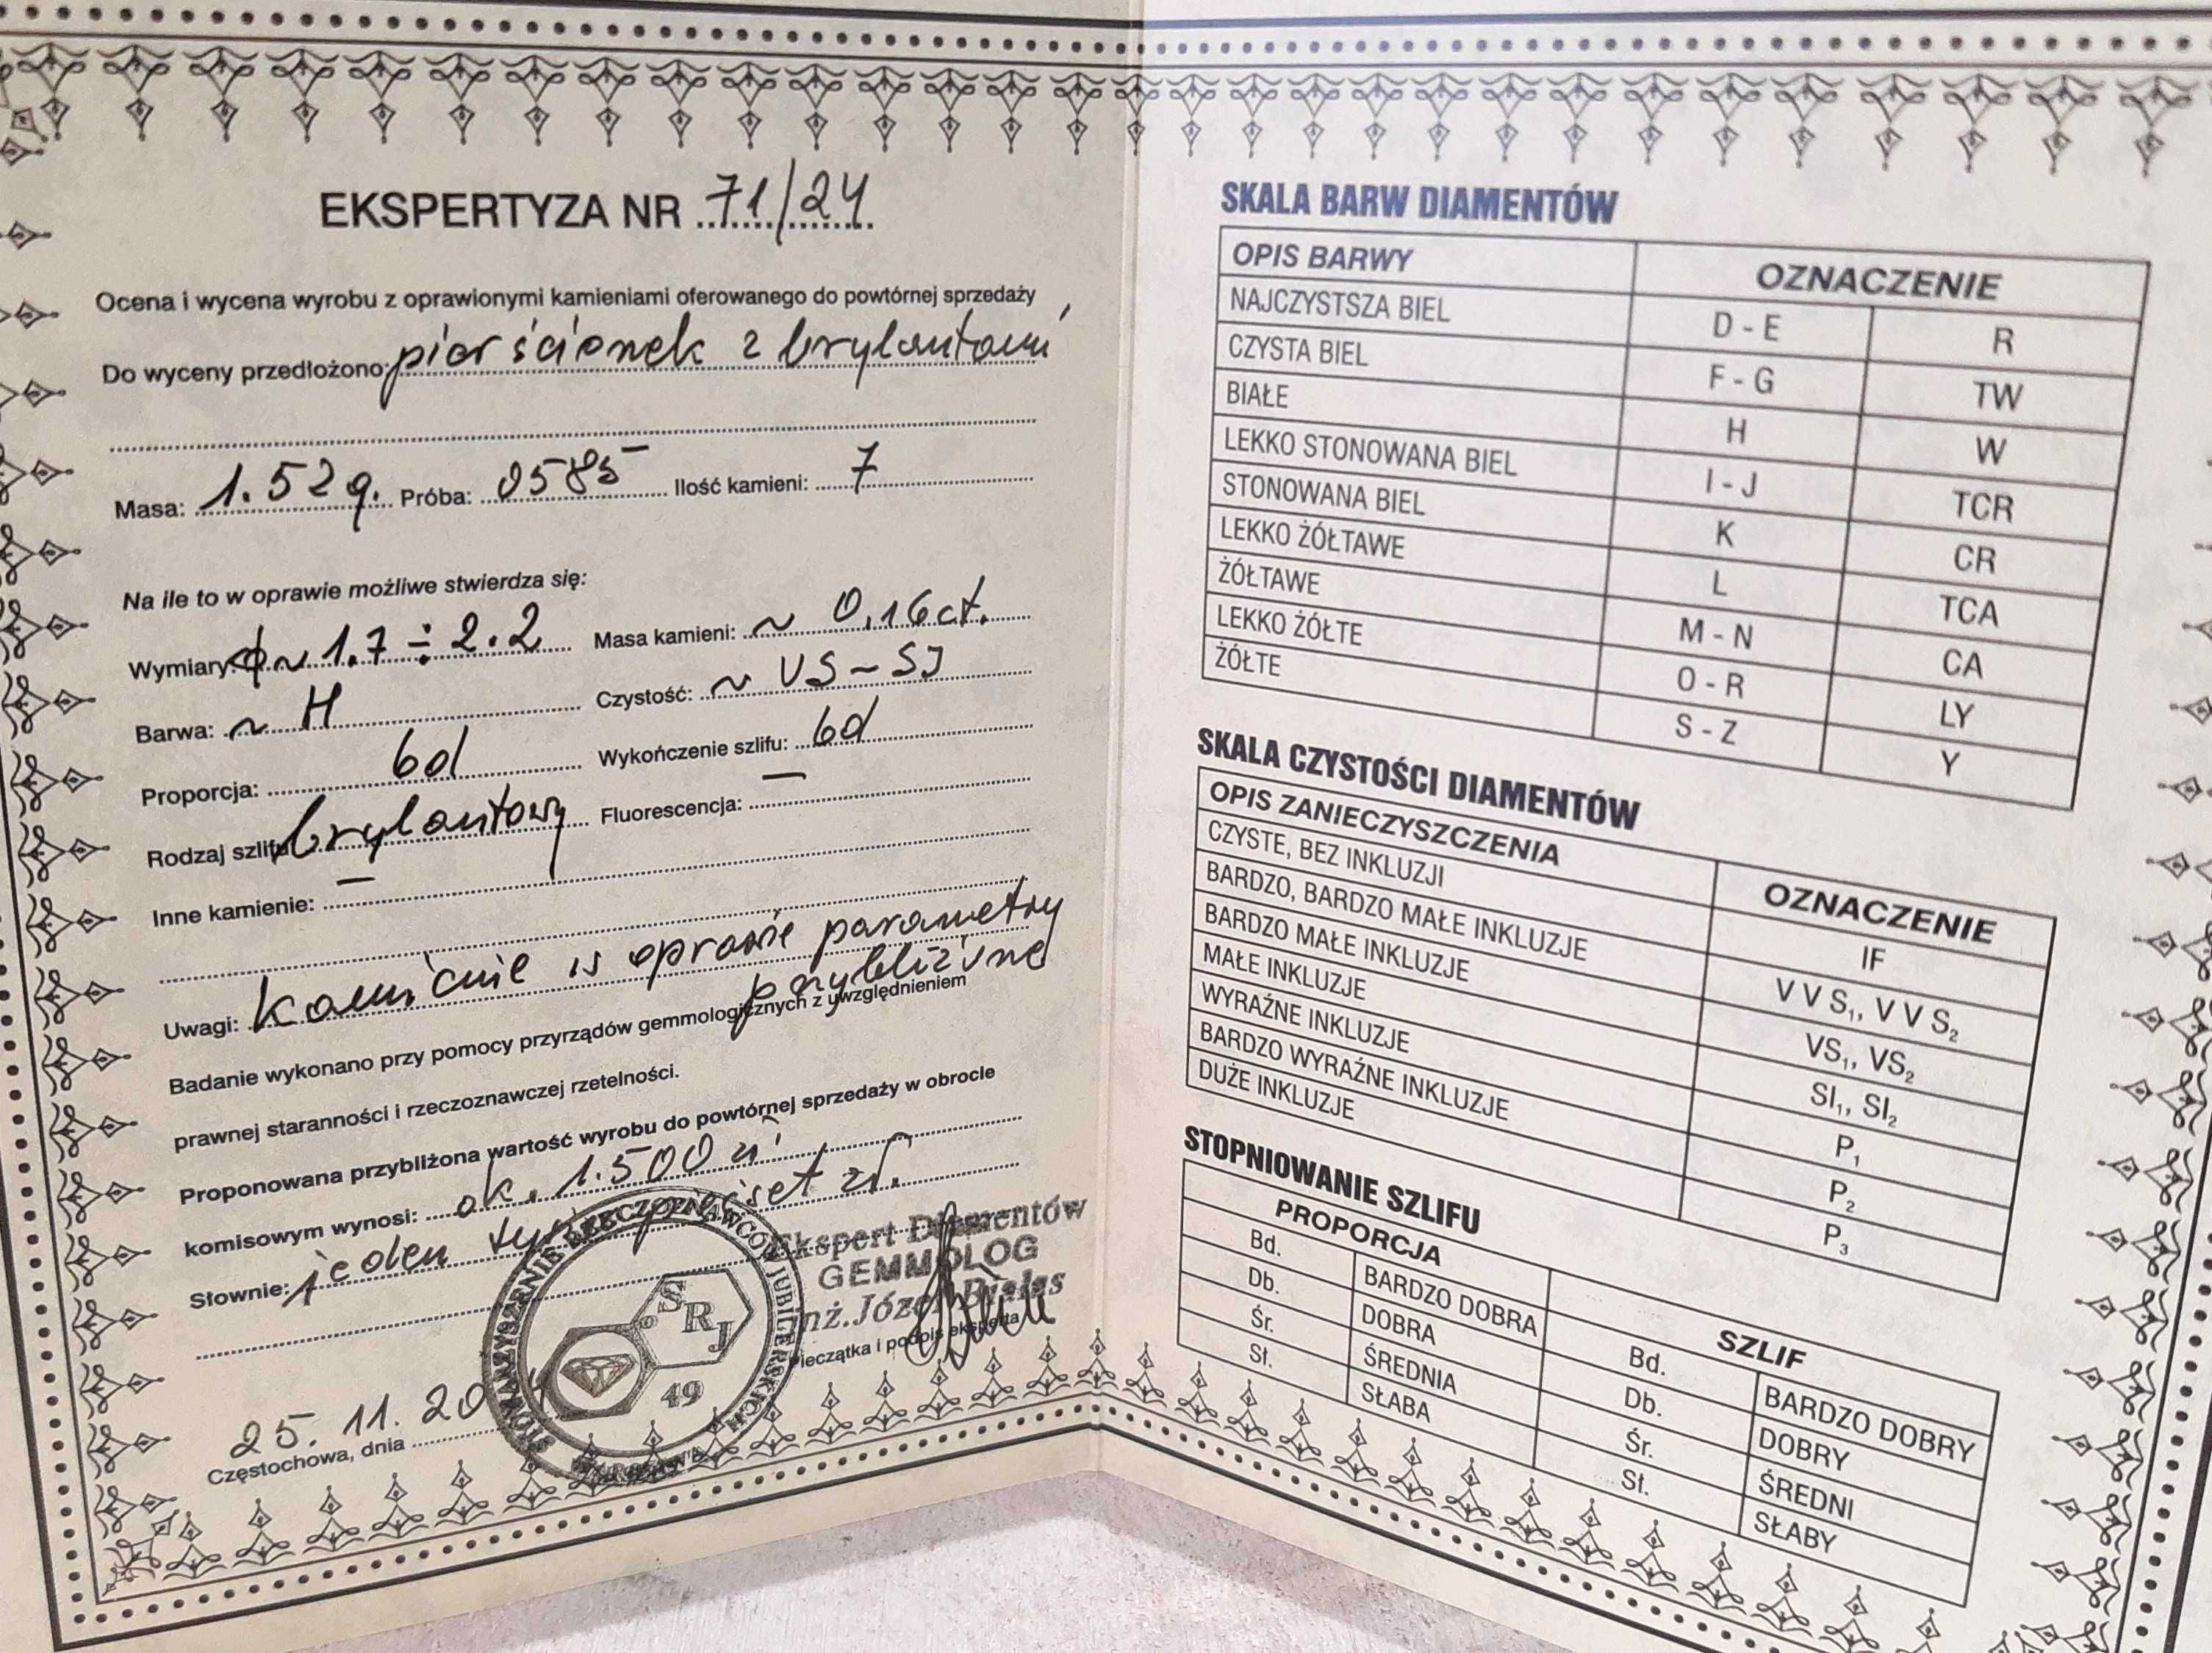 EKSPERTYZA NR 71/24
Ocena i wycena wyrobu z oprawionymi kamieniami oferowanego do powtórnej sprzedaży
Do wyceny przedłożono: pierścionek z brylantami
Masa: 1.52 g. Próba: 0585 Ilość kamieni: 7
Na ile to w oprawie możliwe stwierdza się:
Wymiary: ϕ ~ 1.7 ÷ 2.2 Masa kamieni: ~ 0.16 ct.
Barwa: ~ H Czystość: ~ VS ~ SI
Proporcja: bd Wykończenie szlifu: bd
Rodzaj szlifu: brylantowy Fluorescencja: —
Inne kamienie: —
Uwagi: Kamienie w oprawie parametry
przybliżone
Badanie wykonano przy pomocy przyrządów gemmologicznych z uwzględnieniem
prawnej staranności i rzeczoznawczej rzetelności.
Proponowana przybliżona wartość wyrobu do powtórnej sprzedaży w obrocie
komisowym wynosi: ok. 1.500 zł
Słownie: jeden tys. pięćset zł.
STOWARZYSZENIE RZECZOZNAWCÓW JUBILERSKICH
SRJ
49
Ekspert Diamentów
GEMMOLOG
inż. Józef Bielas
Pieczątka i podpis eksperta
25. 11. 20
Częstochowa, dnia
SKALA BARW DIAMENTÓW
OPIS BARWY OZNACZENIE
NAJCZYSTSZA BIEL D - E R
CZYSTA BIEL F - G TW
BIAŁE H W
LEKKO STONOWANA BIEL I - J TCR
STONOWANA BIEL K CR
LEKKO ŻÓŁTAWE L TCA
ŻÓŁTAWE M - N CA
LEKKO ŻÓŁTE O - R LY
ŻÓŁTE S - Z Y
SKALA CZYSTOŚCI DIAMENTÓW
OPIS ZANIECZYSZCZENIA OZNACZENIE
CZYSTE, BEZ INKLUZJI IF
BARDZO, BARDZO MAŁE INKLUZJE V V S₁, V V S₂
BARDZO MAŁE INKLUZJE VS₁, VS₂
MAŁE INKLUZJE SI₁, SI₂
WYRAŹNE INKLUZJE P₁
BARDZO WYRAŹNE INKLUZJE P₂
DUŻE INKLUZJE P₃
STOPNIOWANIE SZLIFU
PROPORCJA SZLIF
Bd. BARDZO DOBRA Bd. BARDZO DOBRY
Db. DOBRA Db. DOBRY
Śr. ŚREDNIA Śr. ŚREDNI
Sł. SŁABA Sł. SŁABY